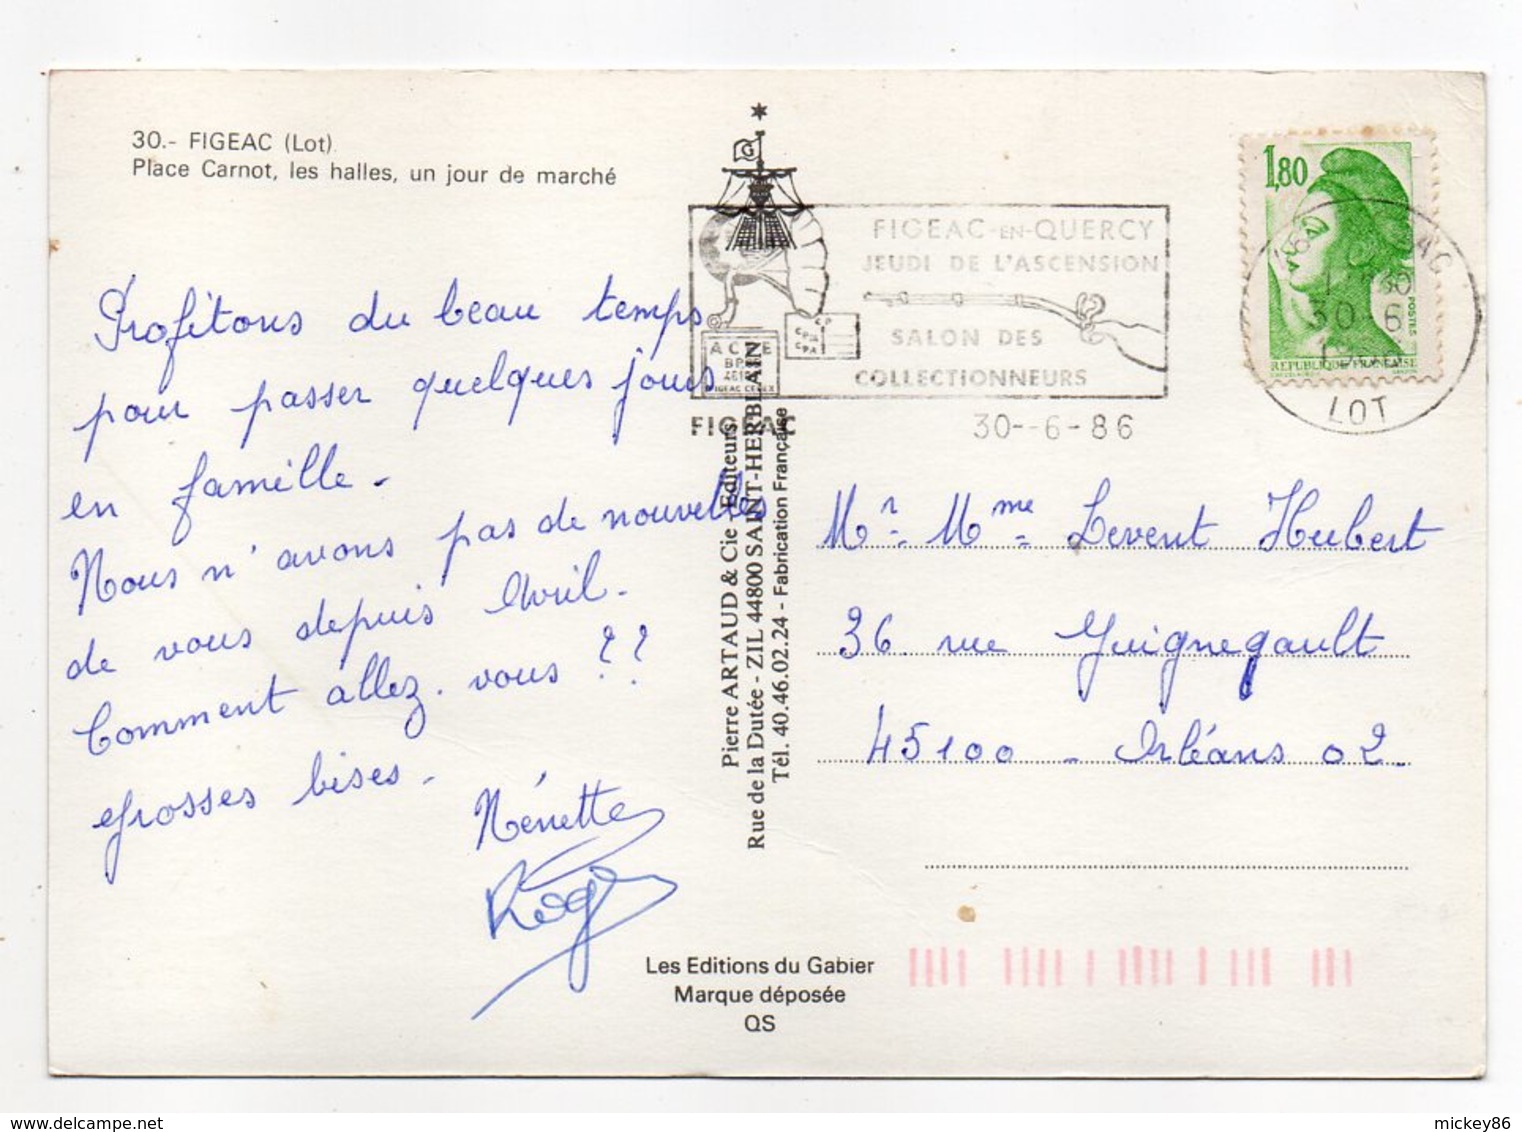 30.- FIGEAC (Lot)
Place Carnot, les halles, un jour de marché
G
FIGEAC-EN-QUERCY
JEUDI DE L'ASCENSION
SALON DES
COLLECTIONNEURS
C.P.
CPA
ACNE
BP
FIGEAC CEDEX
FIGEAC
30--6-86
1,80
POSTES
REPUBLIQUE FRANÇAISE
30-6
LOT
Profitons du beau temps
pour passer quelques jours
en famille.
Nous n'avons pas de nouvelles
de vous depuis Avril.
Comment allez-vous ??
Grosses bises.
Nénette
Roger
Pierre ARTAUD & Cie - Editeurs
Rue de la Dutée - ZIL 44800 SAINT-HERBLAIN
Tél. 40.46.02.24 - Fabrication Française
Mr. Mme Levent Hubert
36 rue Guignegault
45100 - Orléans 02.
Les Editions du Gabier
Marque déposée
QS
mickey86